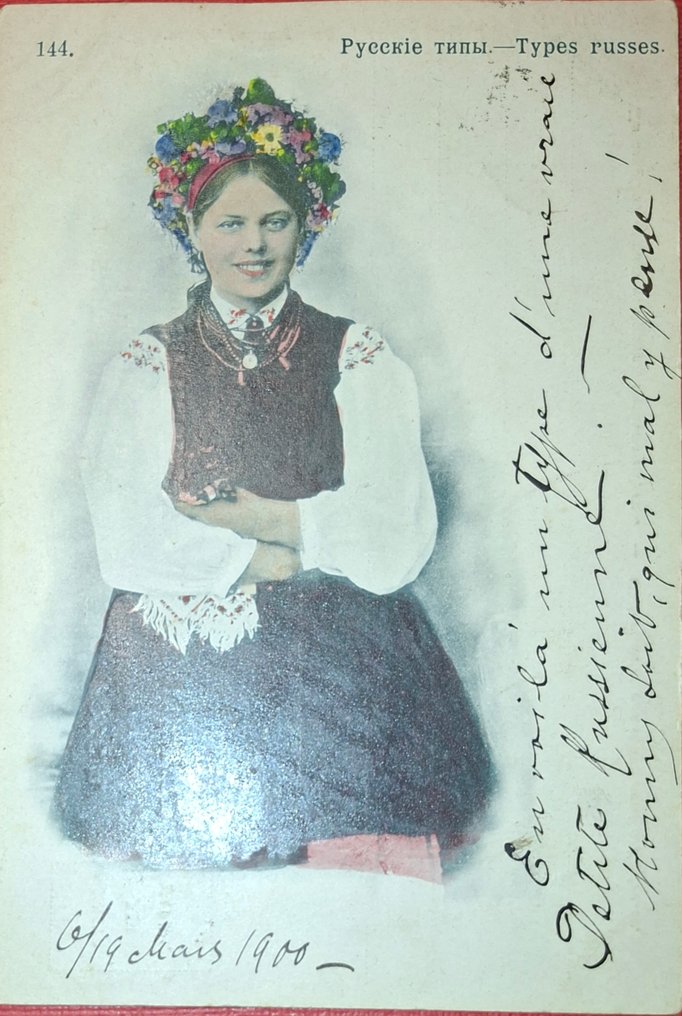 144.
Русскіе типы.—Types russes.
En voilá un type d'une vraie
Petite Russienne. —
Honny soit, qui mal y pense!
6/19 Mars 1900 —